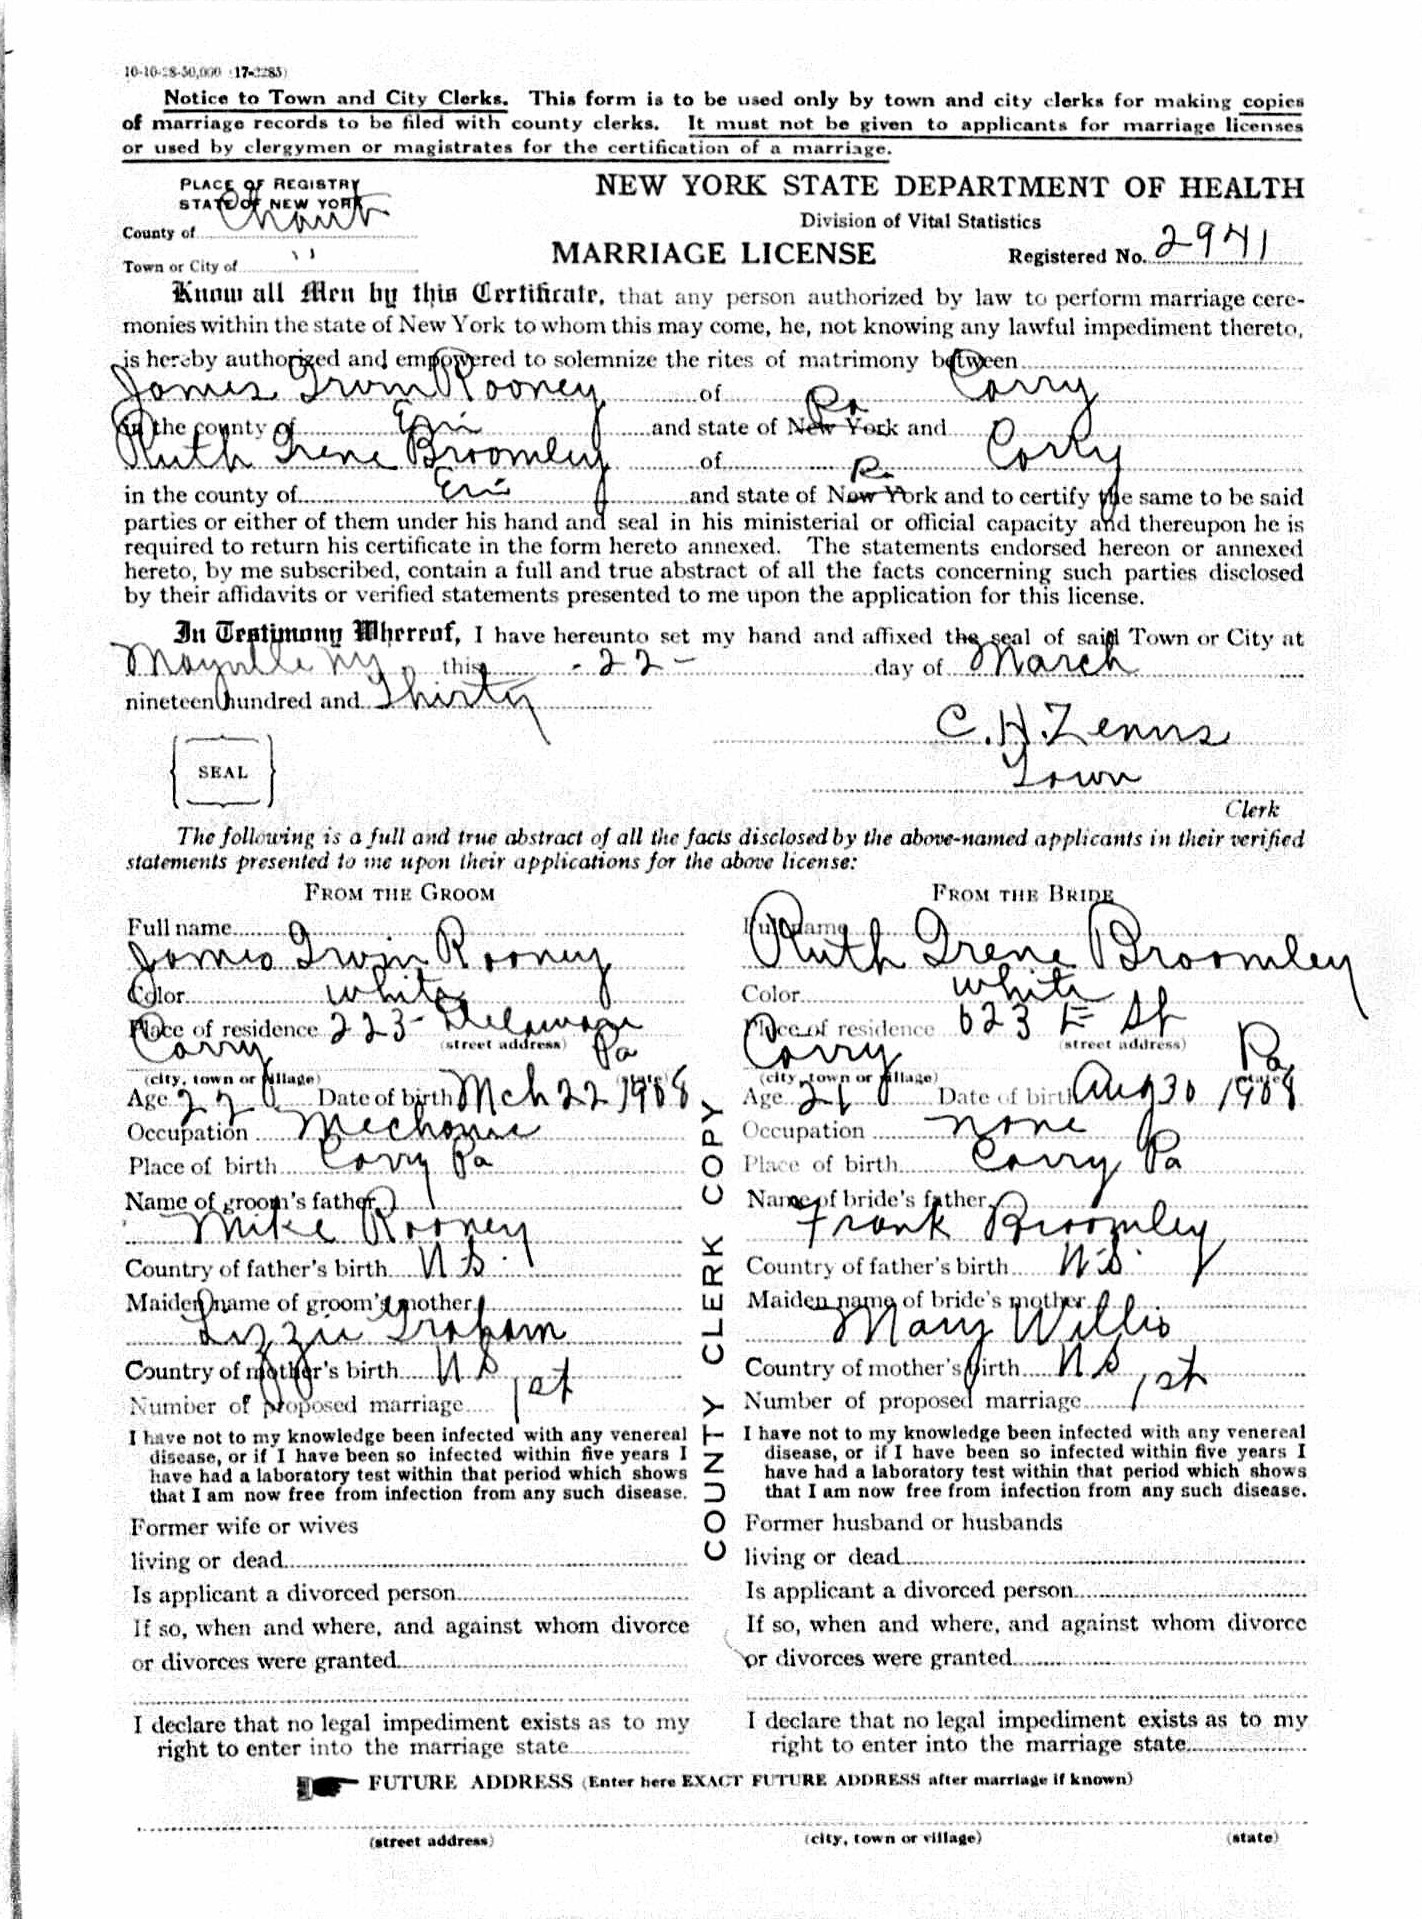 10-10-28-50,000 (17-2285)
Notice to Town and City Clerks. This form is to be used only by town and city clerks for making copies
of marriage records to be filed with county clerks. It must not be given to applicants for marriage licenses
or used by clergymen or magistrates for the certification of a marriage.
PLACE OF REGISTRY
STATE OF NEW YORK
County of Chaut
Town or City of "
NEW YORK STATE DEPARTMENT OF HEALTH
Division of Vital Statistics
MARRIAGE LICENSE
Registered No. 2941
Know all Men by this Certificate, that any person authorized by law to perform marriage cere-
monies within the state of New York to whom this may come, he, not knowing any lawful impediment thereto,
is hereby authorized and empowered to solemnize the rites of matrimony between
James Irvin Rooney of Corry
in the county of Erie and state of New York Pa and
Ruth Irene Broomley of Corry
in the county of Erie and state of New York Pa and to certify the same to be said
parties or either of them under his hand and seal in his ministerial or official capacity and thereupon he is
required to return his certificate in the form hereto annexed. The statements endorsed hereon or annexed
hereto, by me subscribed, contain a full and true abstract of all the facts concerning such parties disclosed
by their affidavits or verified statements presented to me upon the application for this license.
In Testimony Whereof, I have hereunto set my hand and affixed the seal of said Town or City at
Mayville NY this - 22 - day of March
nineteen hundred and Thirty
C. H. 
SEAL
Town
Clerk
The following is a full and true abstract of all the facts disclosed by the above-named applicants in their verified
statements presented to me upon their applications for the above license:
FROM THE GROOM
Full name
James Irvin Rooney
Color white
Place of residence 223 - Delaware
(street address)
Corry Pa
(city, town or village) (state)
Age 22 Date of birth Mch 22 1908
Occupation Mechanic
Place of birth Corry Pa
Name of groom's father
Mike Rooney
Country of father's birth U.S.
Maiden name of groom's mother
Lizzie Graham
Country of mother's birth U S
Number of proposed marriage 1st
I have not to my knowledge been infected with any venereal
disease, or if I have been so infected within five years I
have had a laboratory test within that period which shows
that I am now free from infection from any such disease.
Former wife or wives
living or dead
Is applicant a divorced person
If so, when and where, and against whom divorce
or divorces were granted
I declare that no legal impediment exists as to my
right to enter into the marriage state
COUNTY CLERK COPY
FROM THE BRIDE
Full name
Ruth Irene Broomley
Color white
Place of residence 623 E St
(street address)
Corry Pa
(city, town or village) (state)
Age 21 Date of birth Aug 30 1908
Occupation none
Place of birth Corry Pa
Name of bride's father
Frank Broomley
Country of father's birth U.S.
Maiden name of bride's mother
Mary Willis
Country of mother's birth U S
Number of proposed marriage 1st
I have not to my knowledge been infected with any venereal
disease, or if I have been so infected within five years I
have had a laboratory test within that period which shows
that I am now free from infection from any such disease.
Former husband or husbands
living or dead
Is applicant a divorced person
If so, when and where, and against whom divorce
or divorces were granted
I declare that no legal impediment exists as to my
right to enter into the marriage state
FUTURE ADDRESS (Enter here EXACT FUTURE ADDRESS after marriage if known)
(street address) (city, town or village) (state)